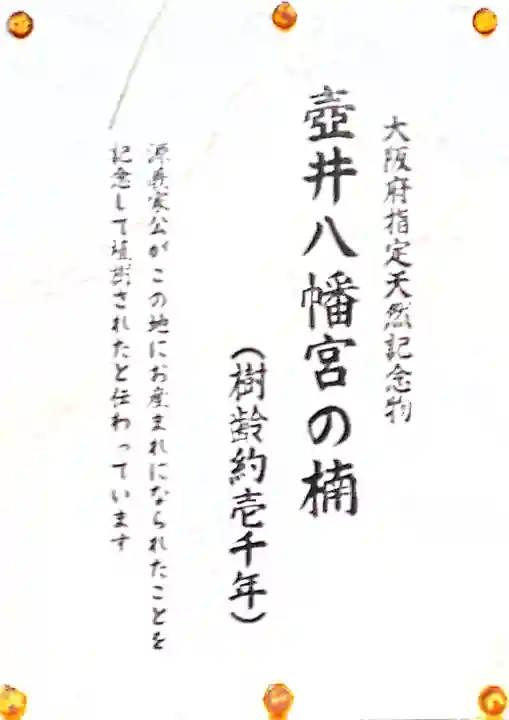 大阪府指定天然記念物
壺井八幡宮の楠
(樹齢約壱千年)
源義家公がこの地にお産まれになられたことを
記念して植樹されたと伝わっています